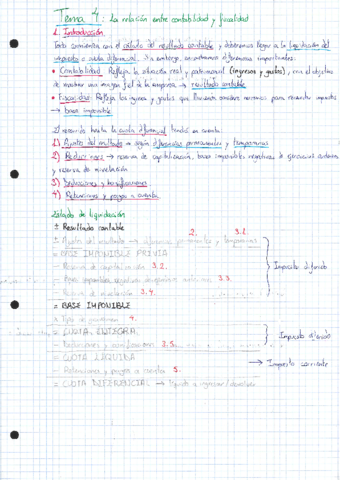 Tema 4: La relación entre contabilidad y fiscalidad
1. Introducción
Todo comienza con el cálculo del resultado contable y debemos llegar a la liquidación del
impuesto o cuota diferencial. Sin embargo, encontramos diferencias importantes:
• Contabilidad: Refleja la situación real y patrimonial (ingresos y gastos), con el objetivo
de mostrar una imagen fiel de la empresa → resultado contable
• Fiscalidad: Refleja los ingresos y gastos que
→ base imponible
El recorrido hasta la cuota diferencial tendrá en cuenta:
1) Ajustes del resultado → según diferencias permanentes y temporarias
2) Reducciones → reserva de capitalización, bases imponibles negativas de ejercicios anteriores
y reserva de nivelación
3) Deducciones y bonificaciones
4) Retenciones y pagos a cuenta
Estado de liquidación
± Resultado contable 2. 3.1.
± Ajustes del resultado → diferencias permanentes y temporarias
= BASE IMPONIBLE PREVIA
- Reserva de capitalización 3.2.
- Bases imponibles negativas de ejercicios 3.3.
- Reserva de nivelación 3.4.
Impuesto diferido
= BASE IMPONIBLE
x Tipo de gravamen 4.
= CUOTA ÍNTEGRA
- Deducciones y bonificaciones 3.5.
Impuesto diferido
= CUOTA LÍQUIDA
→ Impuesto corriente
- Retenciones y pagos a cuenta 5.
= CUOTA DIFERENCIAL → líquido a ingresar/devolver